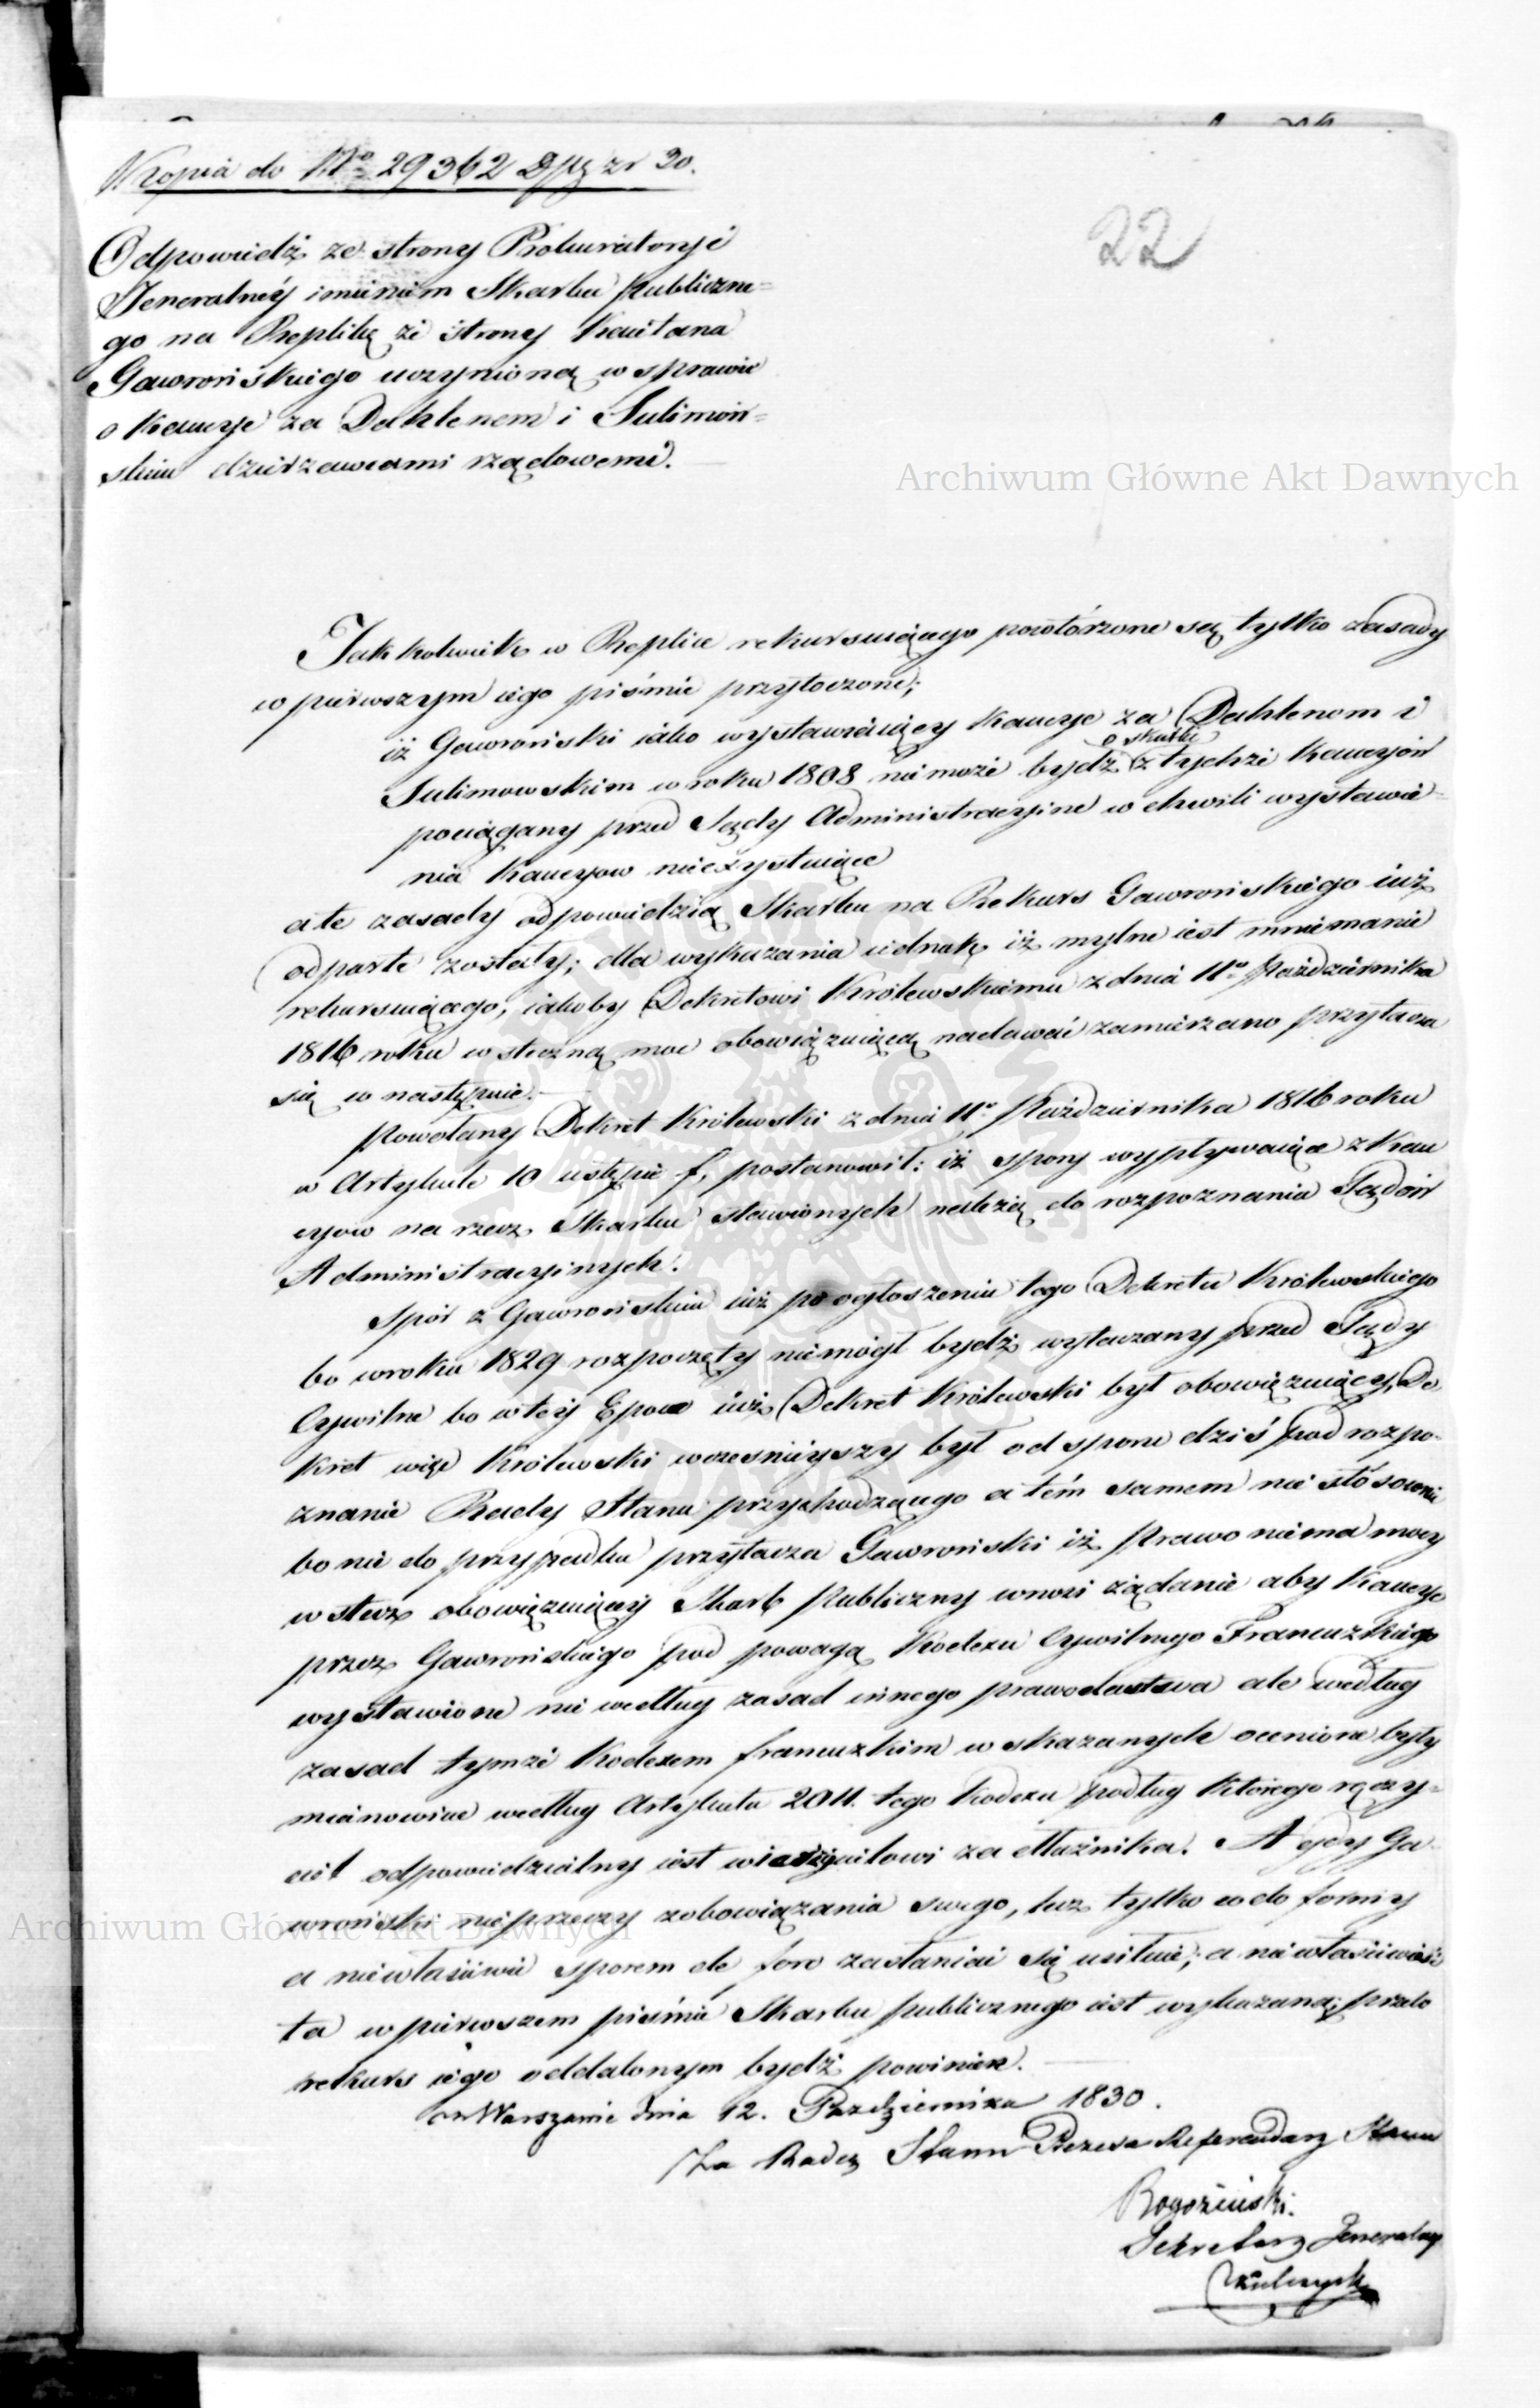 Kopia do No 29362 Dpg zr 30.
22
Odpowiedź ze strony Prokuratoryi
Jeneralnéy imieniem Skarbu Publiczne=
go na Replikę ze strony Kaietana
Gawrońskiego uczynioną w sprawie
o Kaucye za Dahlenem i Sulimow=
skim dzierzawcami rządowemi.
Archiwum Główne Akt Dawnych
Jakkolwiek w Replice rekursuiącego powtórzone są tylko zasady
w pierwszym iego piśmie przytoczone;
iż Gawroński iako wystawiaiący Kaucye za Dahlenem i
Sulimowskim w roku 1808 nie może bydź o skutki z tychże Kaucyów
pociągany przed Sądy Administracyine w chwili wystawie=
nia Kaucyow nieexystuiące
a te zasady odpowiedzią Skarbu na Rekurs Gawrońskiego iuż
odparte zostały; dla wykazania iednak iż mylne iest mniemanie
rekursuiącego, iakoby Dekretowi Królewskiemu z dnia 11o Października
1816 roku wsteczną moc obowiązuiącą nadawać zamierzano przytacza
się w następnie.
Powołany Dekret Królewski z dnia 11o Października 1816 roku
w Artykule 10 ustępie f. postanowił: iż spory wypływaiące z Kau
cyow na rzecz Skarbu stawionych należą do rozpoznania Sądów
Administracyinych.
Spór z Gawrońskim iuż po ogłoszeniu tego Dekretu Królewskiego
bo w roku 1829 rozpoczęty niemógł bydź wytaczany przed Sądy
Cywilne bo w téy Epoce iuż Dekret Królewski był obowiązuiący, De
kret więc Królewski wcześnieyszy był od sporu dziś pod rozpo=
znanie Rady Stanu przychodzącego a tém samem nie stósownie
bo nie do przypadku przytacza Gawroński iż Prawo niema mocy
wstecz obowiązuiącéy Skarb Publiczny wnosi żądanie aby Kaucye
przez Gawrońskiego pod powagą Kodexu Cywilnego Francuzkiego
wystawione nie według zasad innego prawodastwa ale według
zasad tymże Kodexem francuzkim wskazanych ocenione były
mianowicie według Artykułu 2011. tego Kodexu podług którego ręczy=
ciel odpowiedzialny iest wierzycielowi za dłużnika. A gdy Ga=
wroński nieprzeczy zobowiązania swego, lecz tylko co do formy
a niewłaściwie sporem de foro zasłaniać się usiłuie; a niewłaściwość
ta w pierwszem piśmie Skarbu publicznego iest wykazaną; przeto
rekurs iego oddalonym bydź powinien.
w Warszawie dnia 12. Października 1830.
Za Radcę Stanu Prezesa Referendarz Stanu
Rogoziński.
Sekretarz Jeneralny
Archiwum Główne Akt Dawnych